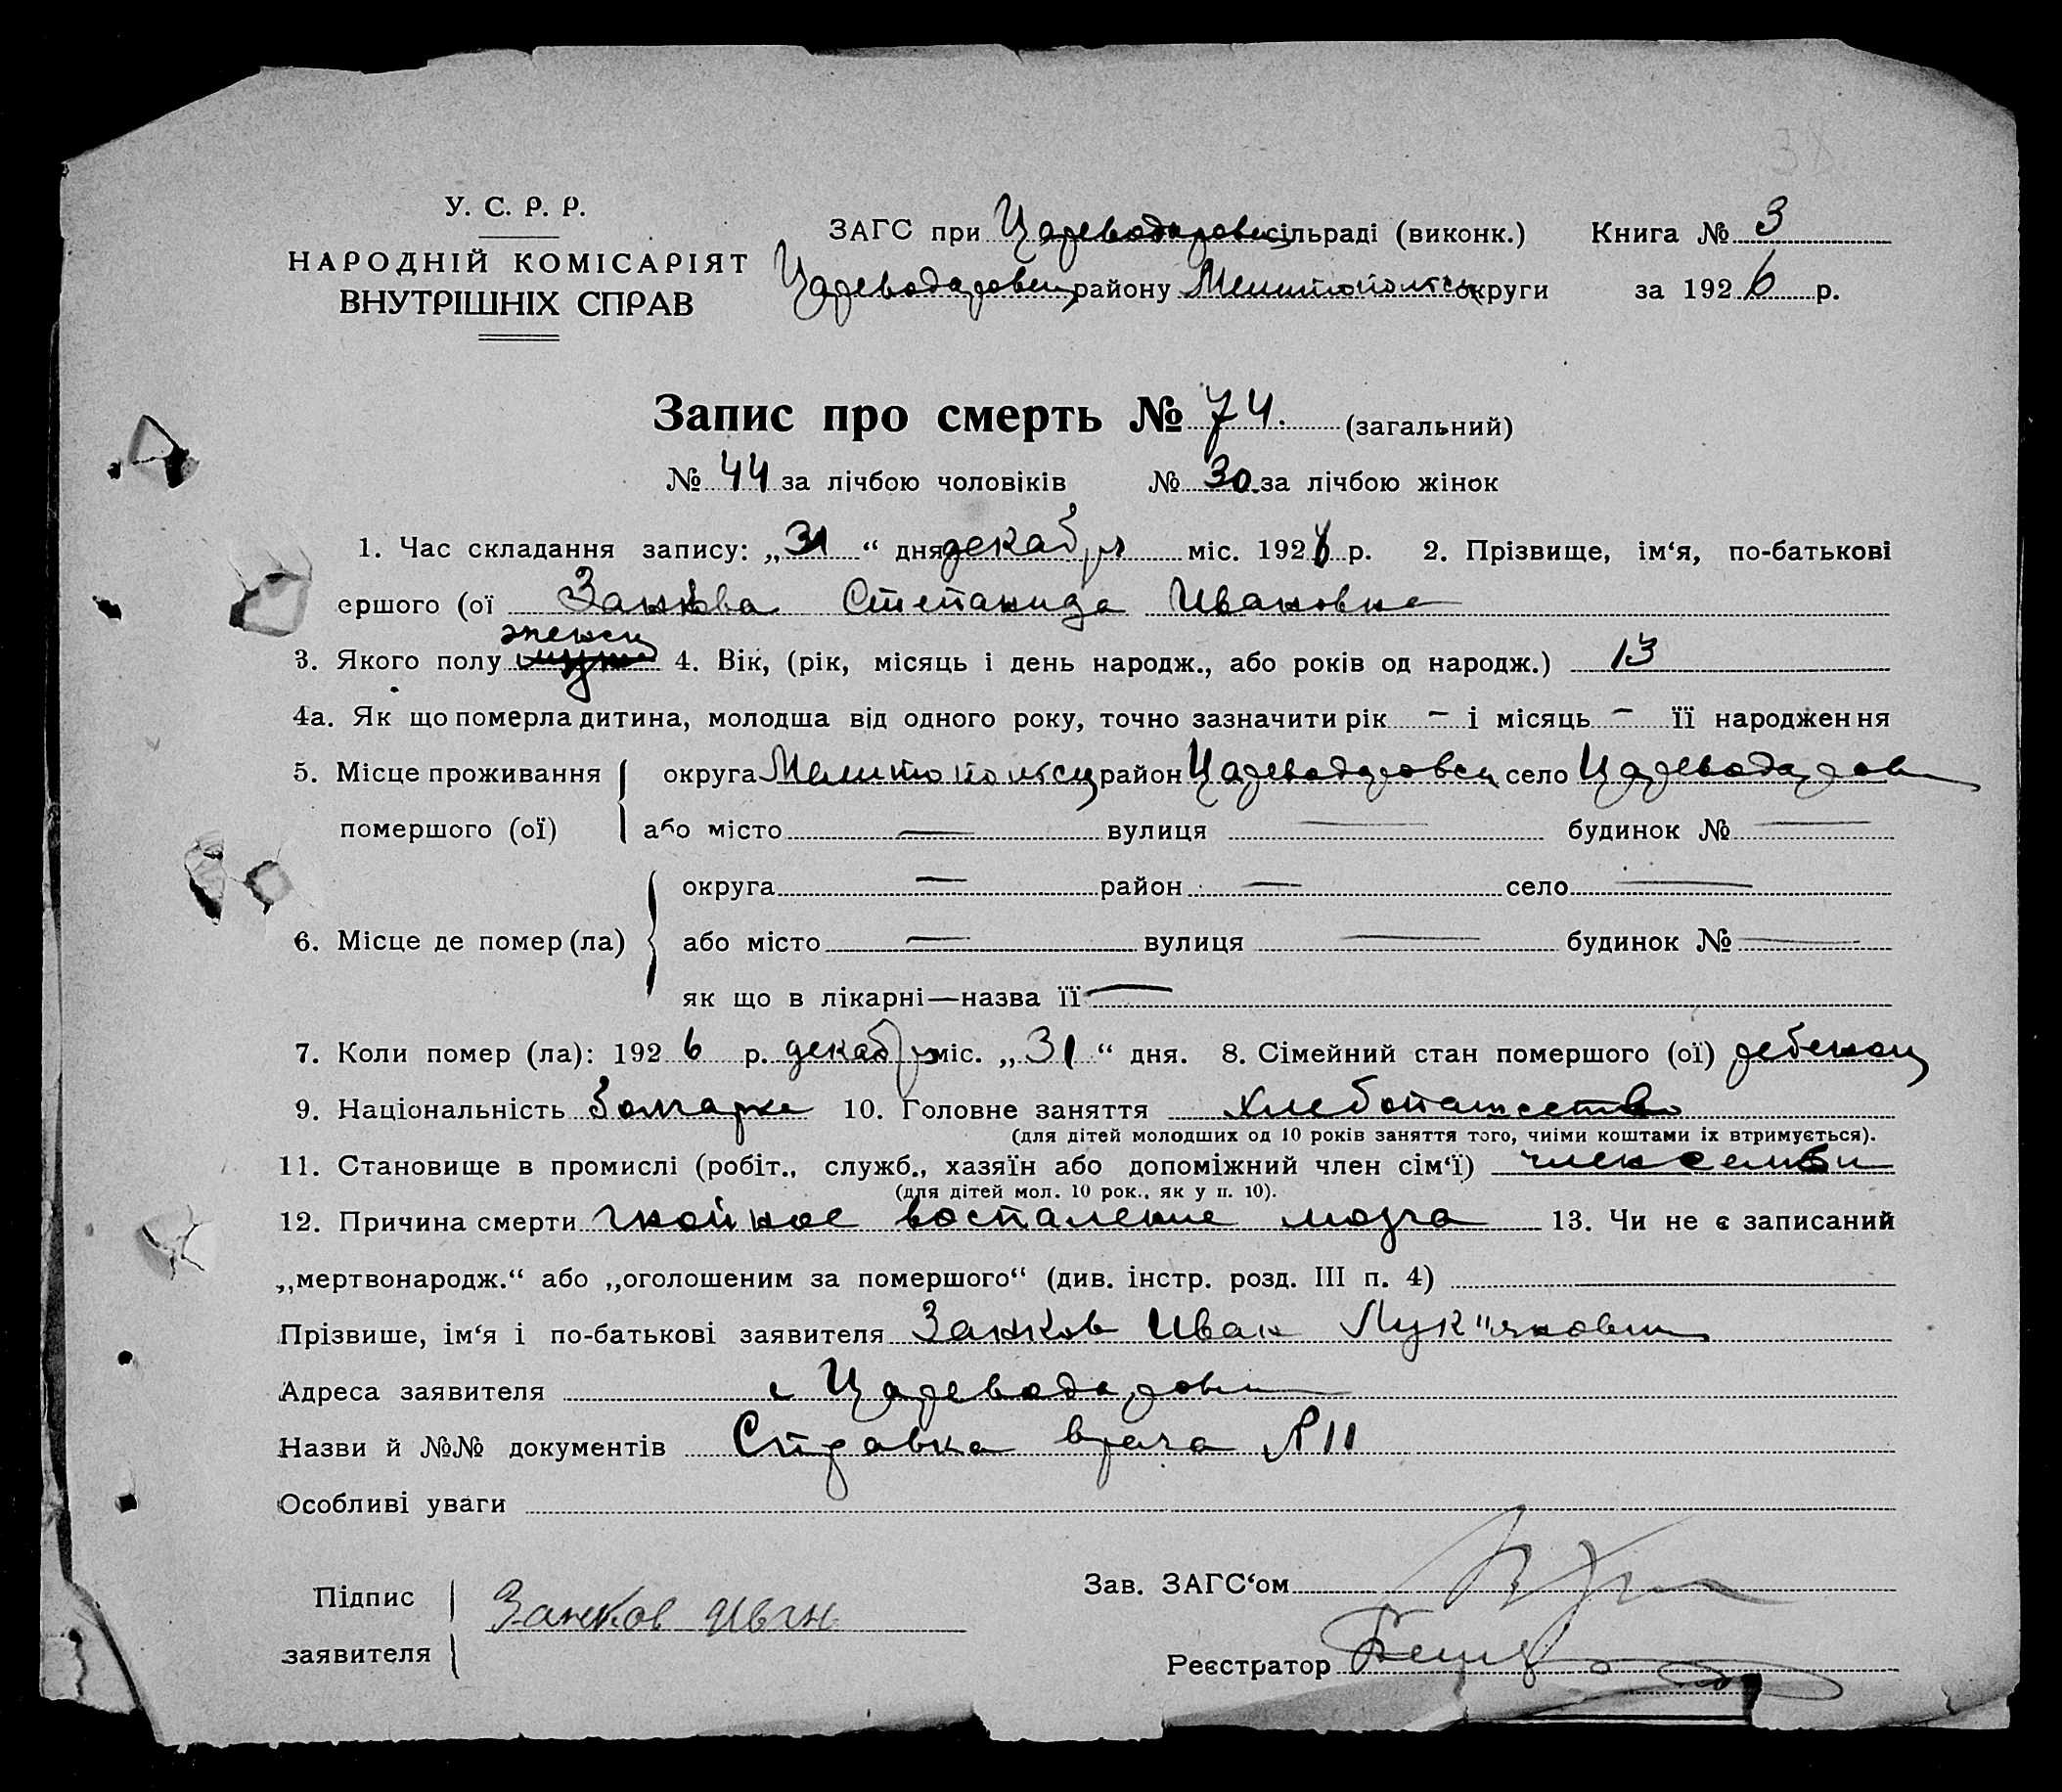 38
У. С. Р. Р.
НАРОДНІЙ КОМІСАРІЯТ
ВНУТРІШНІХ СПРАВ
ЗАГС при Цареводаровск сільраді (виконк.) Книга № 3
Цареводаровск району Мелитопольск округи за 1926 р.
Запис про смерть № 74. (загальний)
№ 44 за лічбою чоловіків № 30. за лічбою жінок
1. Час складання запису: „31“ дня декабря міс. 1926 р. 2. Прізвище, ім‘я, по-батькові
ершого (ої Занкова Степанида Ивановна
3. Якого полу женск 4. Вік, (рік, місяць і день народж., або років од народж.) 13
4а. Як що померла дитина, молодша від одного року, точно зазначити рік – і місяць – її народження
5. Місце проживання округа Мелитопольск район Цареводаровск село Цареводаровк
помершого (ої) або місто — вулиця — будинок № —
округа — район — село —
6. Місце де помер (ла) або місто — вулиця — будинок № —
як що в лікарні—назва її —
7. Коли помер (ла): 1926 р. декабря міс. „31“ дня. 8. Сімейний стан помершого (ої) ребенок
9. Національність болгарка 10. Головне заняття хлебопашество
(для дітей молодших од 10 років заняття того, чиіми коштами іх втримується).
11. Становище в промислі (робіт., служб., хазяїн або допоміжний член сім‘ї) член семьи
(для дітей мол. 10 рок., як у п. 10).
12. Причина смерти гнойное воспаление мозга 13. Чи не є записаний
„мертвонародж.“ або „оголошеним за помершого“ (див. інстр. розд. III п. 4)
Прізвише, ім‘я і по-батькові заявителя Занков Иван Лук"янович
Адреса заявителя с Цареводаровк
Назви й №№ документів Справка врача №11
Особливі уваги
Підпис заявителя Занков Иван
Зав. ЗАГС‘ом
Реєстратор